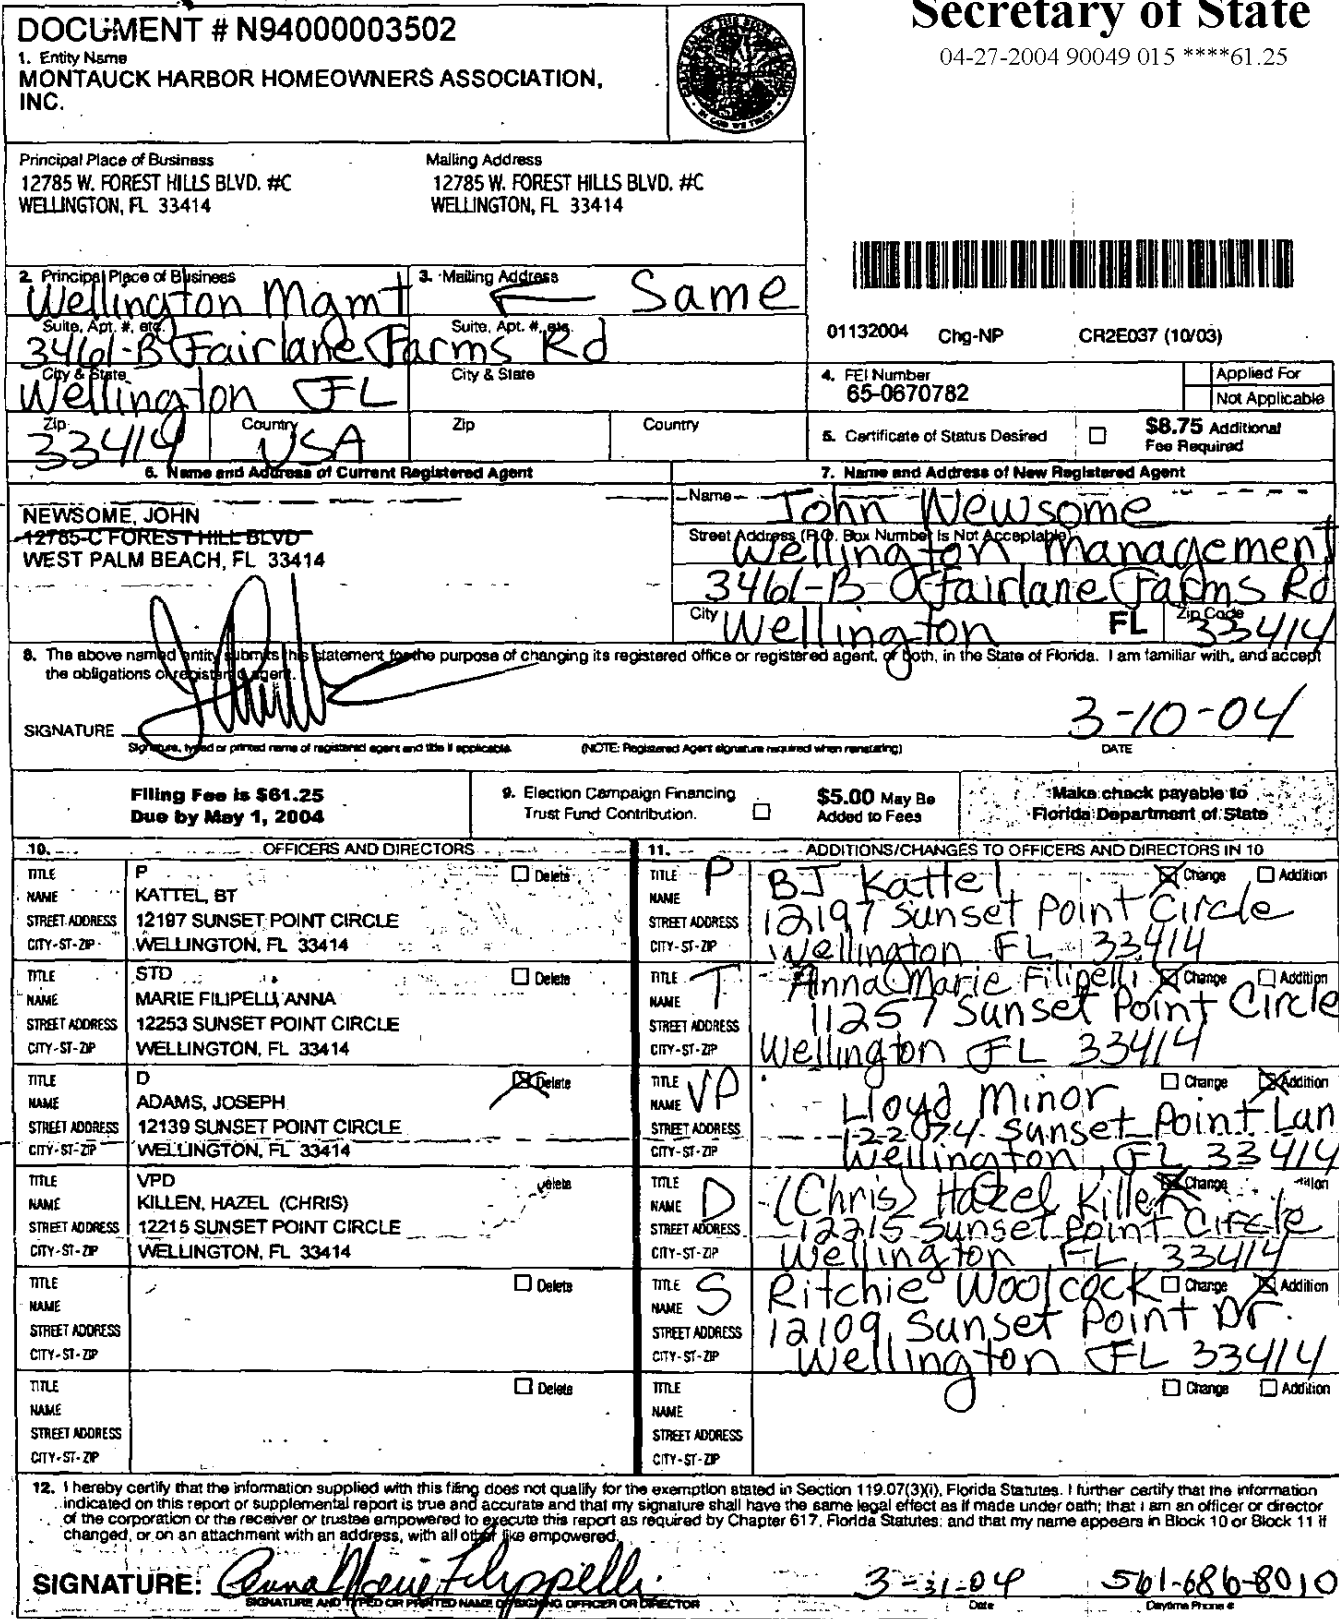 Secretary of State
04-27-2004 90049 015 ****61.25
DOCUMENT # N94000003502
1. Entity Name
MONTAUCK HARBOR HOMEOWNERS ASSOCIATION,
INC.
Principal Place of Business
12785 W. FOREST HILLS BLVD. #C
WELLINGTON, FL 33414
Mailing Address
12785 W. FOREST HILLS BLVD. #C
WELLINGTON, FL 33414
2. Principal Place of Business
Wellington Mgmt
3. Mailing Address
Same
Suite, Apt. #, etc.
3461-B Fairlane Farms Rd
Suite, Apt. #, etc.
City & State
Wellington FL
City & State
Zip
33414
Country
USA
Zip
Country
01132004 Chg-NP CR2E037 (10/03)
4. FEI Number
65-0670782
Applied For
Not Applicable
5. Certificate of Status Desired
$8.75 Additional
Fee Required
6. Name and Address of Current Registered Agent
NEWSOME, JOHN
12785-C FOREST HILL BLVD
WEST PALM BEACH, FL 33414
7. Name and Address of New Registered Agent
Name
John Newsome
Street Address (P.O. Box Number is Not Acceptable)
Wellington management
3461-B Fairlane Farms Rd
City Wellington FL Zip Code 33414
8. The above named entity submits this statement for the purpose of changing its registered office or registered agent, or both, in the State of Florida. I am familiar with, and accept
the obligations of registered agent.
SIGNATURE
3-10-04
Signature, typed or printed name of registered agent and title if applicable
(NOTE: Registered Agent signature required when reinstating)
DATE
Filing Fee is $61.25
Due by May 1, 2004
9. Election Campaign Financing
Trust Fund Contribution.
$5.00 May Be
Added to Fees
Make check payable to
Florida Department of State
10. OFFICERS AND DIRECTORS
TITLE P Delete
NAME KATTEL, BT
STREET ADDRESS 12197 SUNSET POINT CIRCLE
CITY-ST-ZIP WELLINGTON, FL 33414
TITLE STD Delete
NAME MARIE FILIPELLI, ANNA
STREET ADDRESS 12253 SUNSET POINT CIRCLE
CITY-ST-ZIP WELLINGTON, FL 33414
TITLE D Delete
NAME ADAMS, JOSEPH
STREET ADDRESS 12139 SUNSET POINT CIRCLE
CITY-ST-ZIP WELLINGTON, FL 33414
TITLE VPD elete
NAME KILLEN, HAZEL (CHRIS)
STREET ADDRESS 12215 SUNSET POINT CIRCLE
CITY-ST-ZIP WELLINGTON, FL 33414
TITLE Delete
NAME
STREET ADDRESS
CITY-ST-ZIP
TITLE Delete
NAME
STREET ADDRESS
CITY-ST-ZIP
11. ADDITIONS/CHANGES TO OFFICERS AND DIRECTORS IN 10
TITLE P Change Addition
NAME BJ Kattel
STREET ADDRESS 12197 Sunset Point Circle
CITY-ST-ZIP Wellington FL 33414
TITLE T Change Addition
NAME Anna Marie Filipelli
STREET ADDRESS 11257 Sunset Point Circle
CITY-ST-ZIP Wellington FL 33414
TITLE VP Change Addition
NAME Lloyd Minor
STREET ADDRESS 122074 Sunset Point Lan
CITY-ST-ZIP Wellington, FL 33414
TITLE D Change ition
NAME (Chris) Hazel Killen
STREET ADDRESS 12215 Sunset Point Circle
CITY-ST-ZIP Wellington FL, 33414
TITLE S Change Addition
NAME Ritchie Woolcock
STREET ADDRESS 12109 Sunset Point Dr.
CITY-ST-ZIP Wellington FL 33414
TITLE Change Addition
NAME
STREET ADDRESS
CITY-ST-ZIP
12. I hereby certify that the information supplied with this filing does not qualify for the exemption stated in Section 119.07(3)(i), Florida Statutes. I further certify that the information
indicated on this report or supplemental report is true and accurate and that my signature shall have the same legal effect as if made under oath; that I am an officer or director
of the corporation or the receiver or trustee empowered to execute this report as required by Chapter 617, Florida Statutes; and that my name appears in Block 10 or Block 11 if
changed, or on an attachment with an address, with all other like empowered.
SIGNATURE: Anna Marie Filippelli 3-31-04 561-686-8010
SIGNATURE AND TYPED OR PRINTED NAME OF SIGNING OFFICER OR DIRECTOR Date Daytime Phone #